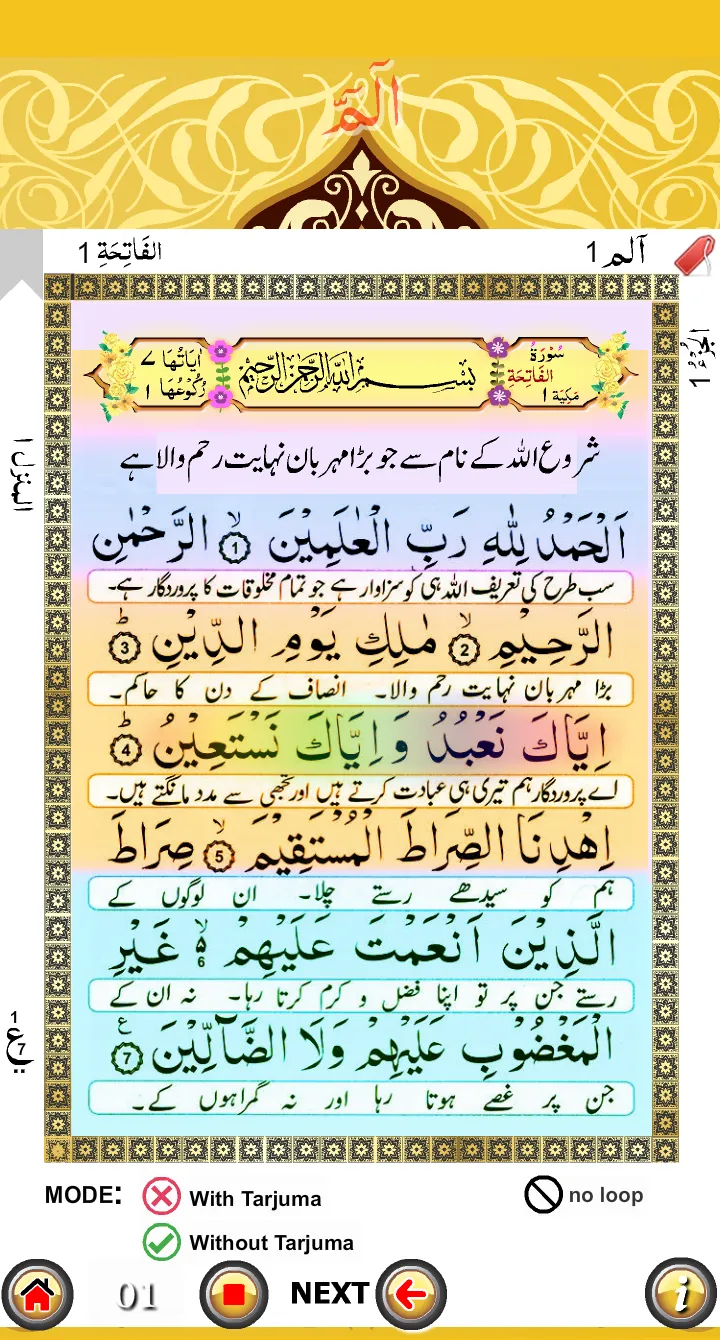 الٓمّٓ
الفَاتِحَةِ 1
آلم 1
الجُزْءُ 1
سُوْرَةُ
الفَاتِحَةِ
مَكِيَّة ١
بِسْمِ اللّٰهِ الرَّحْمٰنِ الرَّحِيْمِ
اٰيَاتُهَا ٧
رُكُوْعُهَا ١
المنزل ١
شروع اللہ کے نام سے جو بڑا مہربان نہایت رحم والا ہے
اَلْحَمْدُ لِلّٰهِ رَبِّ الْعٰلَمِيْنَ ۙ 1 الرَّحْمٰنِ
سب طرح کی تعریف اللہ ہی کو سزاوار ہے جو تمام مخلوقات کا پروردگار ہے۔
الرَّحِيْمِ ۙ 2 مٰلِكِ يَوْمِ الدِّيْنِ ؕ 3
بڑا مہربان نہایت رحم والا۔ انصاف کے دن کا حاکم۔
اِيَّاكَ نَعْبُدُ وَ اِيَّاكَ نَسْتَعِيْنُ ؕ 4
اے پروردگار ہم تیری ہی عبادت کرتے ہیں اور تجھی سے مدد مانگتے ہیں۔
اِهْدِنَا الصِّرَاطَ الْمُسْتَقِيْمَ ۙ 5 صِرَاطَ
ہم کو سیدھے رستے چلا۔ ان لوگوں کے
الَّذِيْنَ اَنْعَمْتَ عَلَيْهِمْ ۙ ۵ 6 غَيْرِ
رستے جن پر تو اپنا فضل و کرم کرتا رہا۔ نہ ان کے
1
ع
7
الْمَغْضُوْبِ عَلَيْهِمْ وَلَا الضَّآلِّيْنَ ع 7
جن پر غصے ہوتا رہا اور نہ گمراہوں کے۔
MODE: With Tarjuma
no loop
Without Tarjuma
01
NEXT
i